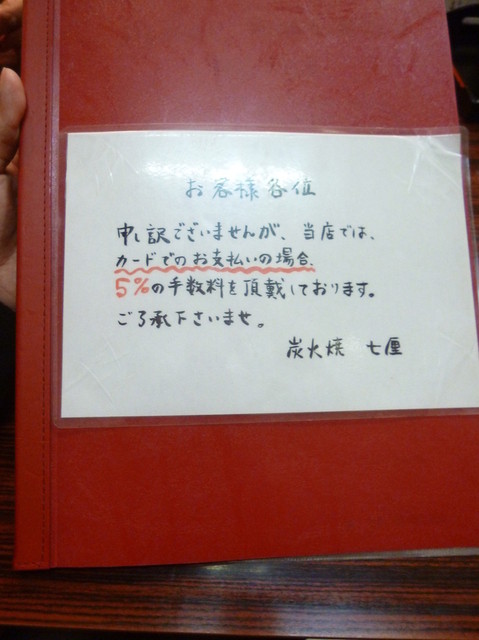 お客様各位
申し訳ございませんが、当店では、
カードでのお支払いの場合、
5%の手数料を頂戴しております。
ご了承下さいませ。
炭火焼 七厘